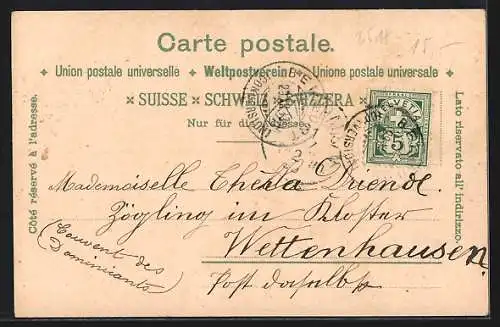 2511 15,-
Carte postale.
Union postale universelle Weltpostverein Unione postale universale
SUISSE SCHWEIZ SVIZZERA
Nur für die Adresse.
Côté réservé à l'adresse.
Lato riservato all' indirizzo.
HELVETIA
5
Mademoiselle Thekla
Zögling im Kloster
Wettenhausen.
(Couvent des
Dominicants)
Post daselbst